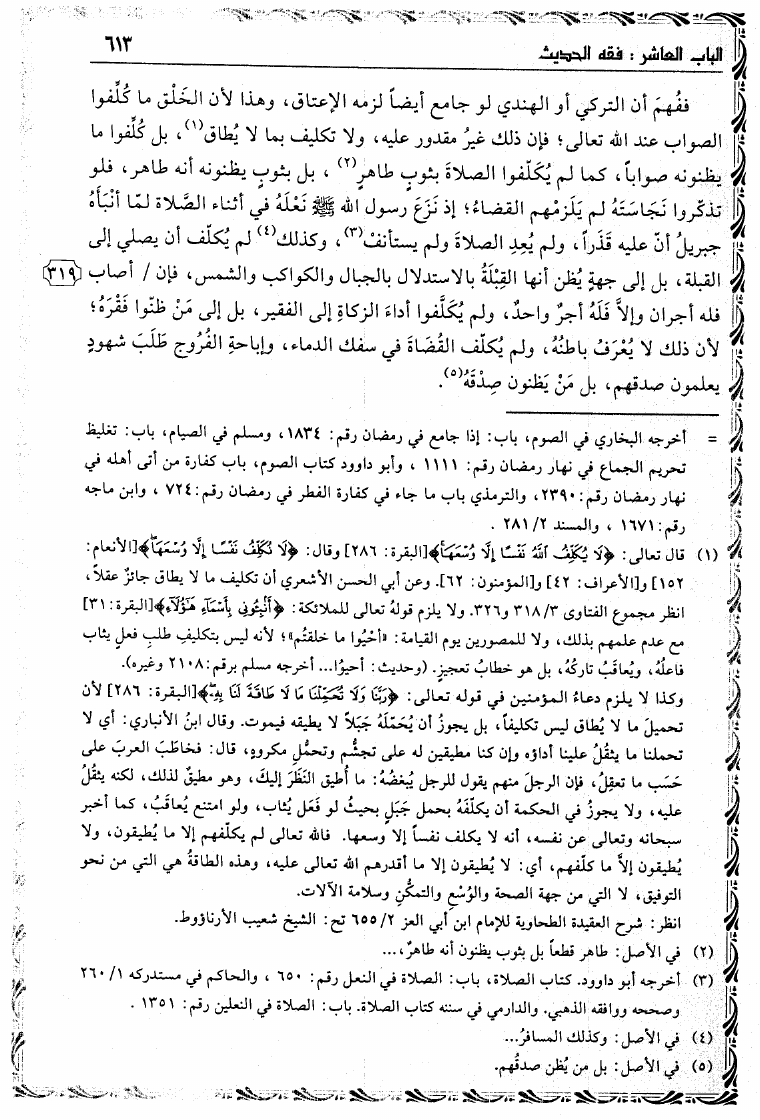 الباب العاشر : فقه الحديث
٦١٣
ففُهِمَ أن التركي أو الهندي لو جامع أيضاً لزمه الإعتاق، وهذا لأن الخَلْق ما كُلِّفوا
الصواب عند الله تعالى؛ فإن ذلك غيرُ مقدور عليه، ولا تكليف بما لا يُطاق(١)، بل كُلِّفوا ما
يظنونه صواباً، كما لم يُكَلَّفوا الصلاةَ بثوبٍ طاهرٍ(٢) ، بل بثوبٍ يظنونه أنه طاهر، فلو
تذكّروا نَجَاسَتَهُ لم يَلزَمْهم القضاءُ؛ إذ نَزَعَ رسول الله ﷺ نَعْلَهُ في أثناء الصَّلاة لمّا أنْبَأهُ
جبريلُ أنّ عليه قَذَراً، ولم يُعِدِ الصلاةَ ولم يستأنفْ(٣)، وكذلك(٤) لم يُكلّف أن يصلي إلى
القبلة، بل إلى جهةٍ يُظن أنها القِبْلَةُ بالاستدلال بالجبال والكواكب والشمس، فإن / أصاب
٣١٩
فله أجران وإلاَّ فَلَهُ أجرٌ واحدٌ، ولم يُكَلَّفوا أداءَ الزكاةِ إلى الفقير، بل إلى مَنْ ظنّوا فَقْرَهُ؛
لأن ذلك لا يُعْرَفُ باطنُهُ، ولم يُكلّف القُضَاةَ في سفك الدماء، وإباحةِ الفُرُوجِ طَلَبَ شهودٍ
يعلمون صدقهم، بل مَنْ يَظنون صِدْقَهُ(٥).
= أخرجه البخاري في الصوم، باب: إذا جامع في رمضان رقم: ١٨٣٤، ومسلم في الصيام، باب: تغليظ
تحريم الجماع في نهار رمضان رقم: ١١١١ ، وأبو داوود كتاب الصوم، باب كفارة من أتى أهله في
نهار رمضان رقم: ٢٣٩٠، والترمذي باب ما جاء في كفارة الفطر في رمضان رقم: ٧٢٤ ، وابن ماجه
رقم: ١٦٧١ ، والمسند ٢/ ٢٨١ .
(١) قال تعالى: ﴿لَا يُكَلِّفُ اللَّهُ نَفْسًا إِلَّا وُسْعَهَا﴾[البقرة: ٢٨٦] وقال: ﴿لَا نُكَلِّفُ نَفْسًا إِلَّا وُسْعَهَا﴾[الأنعام:
١٥٢] و[الأعراف: ٤٢] و[المؤمنون: ٦٢]. وعن أبي الحسن الأشعري أن تكليف ما لا يطاق جائزٌ عقلاً،
انظر مجموع الفتاوى ٣/ ٣١٨ و٣٢٦. ولا يلزم قولهُ تعالى للملائكة: ﴿أَنْبِئُونِي بِأَسْمَاءِ هَٰؤُلَاءِ﴾[البقرة: ٣١]
مع عدم علمهم بذلك، ولا للمصورين يوم القيامة: «أحْيُوا ما خلقتُم»؛ لأنه ليس بتكليفِ طلبِ فعلٍ يثاب
فاعلُهُ، ويُعاقَبُ تاركُهُ، بل هو خطابُ تعجيزٍ. (وحديث: أحيوُا... أخرجه مسلم برقم: ٢١٠٨ وغيره).
وكذا لا يلزم دعاءُ المؤمنين في قوله تعالى: ﴿رَبَّنَا وَلَا تُحَمِّلْنَا مَا لَا طَاقَةَ لَنَا بِهِ﴾[البقرة: ٢٨٦] لأن
تحميلَ ما لا يُطاق ليس تكليفاً، بل يجوزُ أن يُحَمِّلَهُ جَبَلاً لا يطيقه فيموت. وقال ابنُ الأنباري: أي لا
تحملنا ما يثقُلُ علينا أداؤه وإن كنا مطيقين له على تجشُّم وتحمُّلِ مكروهٍ، قال: فخاطَبَ العربَ على
حَسَب ما تعقِلُ، فإن الرجلَ منهم يقول للرجل يُبغضُهُ: ما أُطيق النَّظَرَ إليكَ، وهو مطيقٌ لذلك، لكنه يثقُلُ
عليه، ولا يجوزُ في الحكمة أن يكلّفَهُ بحمل جَبَلٍ بحيثُ لو فَعَل يُثاب، ولو امتنع يُعاقَبُ، كما أخبر
سبحانه وتعالى عن نفسه، أنه لا يكلف نفساً إلا وسعها. فالله تعالى لم يكلّفهم إلا ما يُطيقون، ولا
يُطيقون إلاَّ ما كلّفهم، أي: لا يُطيقون إلا ما أقدرهم الله تعالى عليه، وهذه الطاقةُ هي التي من نحو
التوفيق، لا التي من جهة الصحة والوُسْعِ والتمكُّنِ وسلامة الآلات.
انظر: شرح العقيدة الطحاوية للإمام ابن أبي العز ٢/ ٦٥٥ تح: الشيخ شعيب الأرناؤوط.
(٢) في الأصل: طاهر قطعاً بل بثوب يظنون أنه طاهرٌ،...
(٣) أخرجه أبو داوود. كتاب الصلاة، باب: الصلاة في النعل رقم: ٦٥٠ ، والحاكم في مستدركه ١/ ٢٦٠
وصححه ووافقه الذهبي. والدارمي في سننه كتاب الصلاة. باب: الصلاة في النعلين رقم: ١٣٥١ .
(٤) في الأصل: وكذلك المسافرُ...
(٥) في الأصل: بل من يُظن صدقُهم.